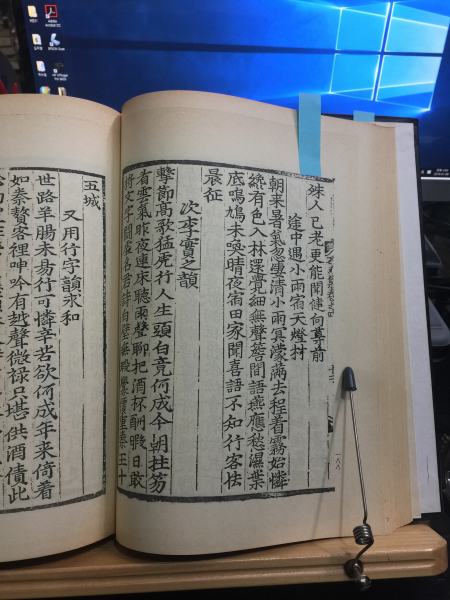 人已老更能閑健向尊前
途中遇小雨宿天燈村
朝来暑氣忽清小雨冥濛滿去程着霧始憐
纔有色入林還覺細無聲簷間語燕應愁濕葉
底鳴鳩未喚晴夜宿田家聞喜語不知行客怯
晨征
次李實之韻
擊節高歌猛虎行人生頭白竟何成今朝拄笏
看雲氣昨夜連床聽雨聲聊把酒杯酬暇日敢
將文字鬪虛名詩白璧無還重秦王十
一八八
五城
又用行字韻求和
世路羊腸未易行可憐辛苦欲何成年来倚着
如秦贅客裡呻吟有越聲微祿只堪供酒債此